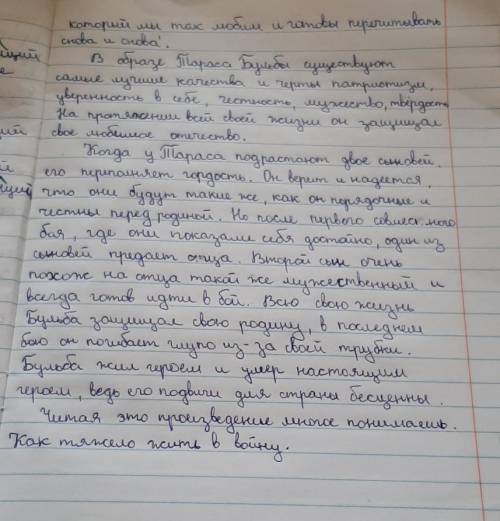 который мы так любим и готовы перечитывать
снова и снова.
В образе Тараса Бульбы существуют
самые лучшие качества и черты патриотизм,
уверенность в себе, честность, мужество, твёрдость
На протяжении всей своей жизни он защищал
свое любимое отечество.
Когда у Тараса подрастают двое сыновей.
его переполняет гордость. Он верит и надеется,
что они будут такие же, как он порядочные и
честны перед родиной. Но после первого
боя, где они показали себя достойно, один из
сыновей предает отца. Второй сын очень
похож на отца такой же мужественный и
всегда готов идти в бой. Всю свою жизнь
Бульба защищал свою родину, в последнем
бою он погибает глупо из-за своей трубки.
Бульба жил героем и умер настоящим
героем, ведь его подвиги для страны бесценны.
Читая это произведение многое понимаешь.
Как тяжело жить в войну.